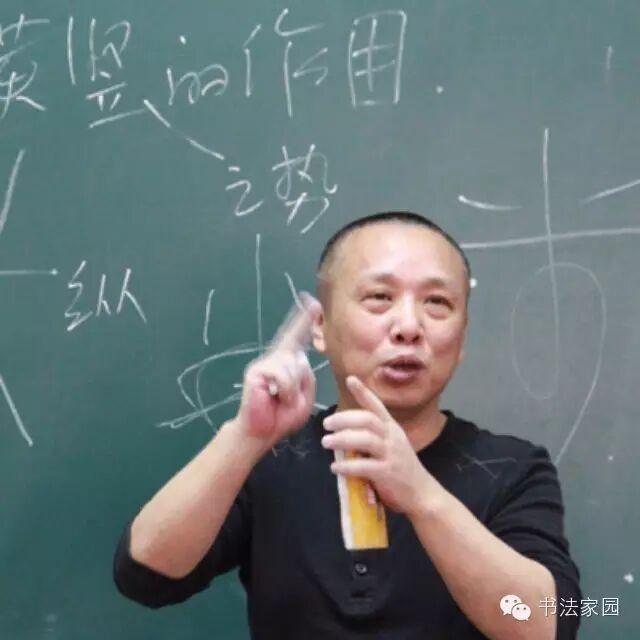 竖的作用.
之势
纵
书法家园